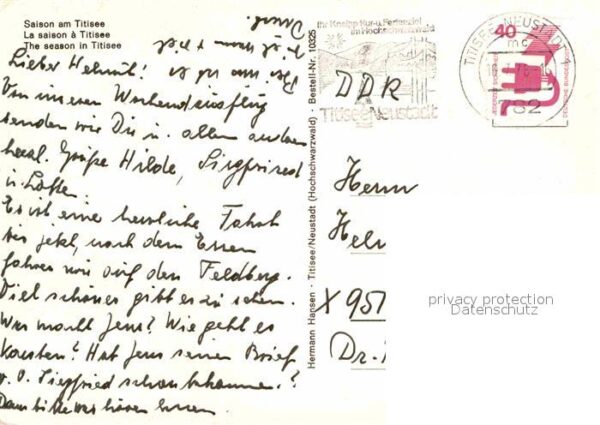 Saison am Titisee
La saison à Titisee
The season in Titisee
Lieber Helmut!
Von unserem Wochendausflug
senden wir Dir u. allen anderen
herzl. Grüße Hilde, Siegfried
u. Lotte.
Es ist eine herrliche Fahrt
bis jetzt, nach dem Essen
fahren wir auf den Feldberg.
Viel schönes gibt es zu sehen.
Was macht Jens? Wie geht es
Karsten? Hat Jens seinen Brief
v. O. Siegfried schon bekommen?
Dann bitte was hören lassen.
Hermann Hansen · Titisee/Neustadt (Hochschwarzwald) · Bestell-Nr. 10325
Ihr Kneipp Kur-u. Ferienziel
im Hochschwarzwald
Titisee Neustadt
TITISEE-NEUSTADT 1
mc
40
JEDERZEIT SICHERHEIT
DEUTSCHE BUNDESPOST
DDR
Herrn
X 951
Dr.
privacy protection
Datenschutz